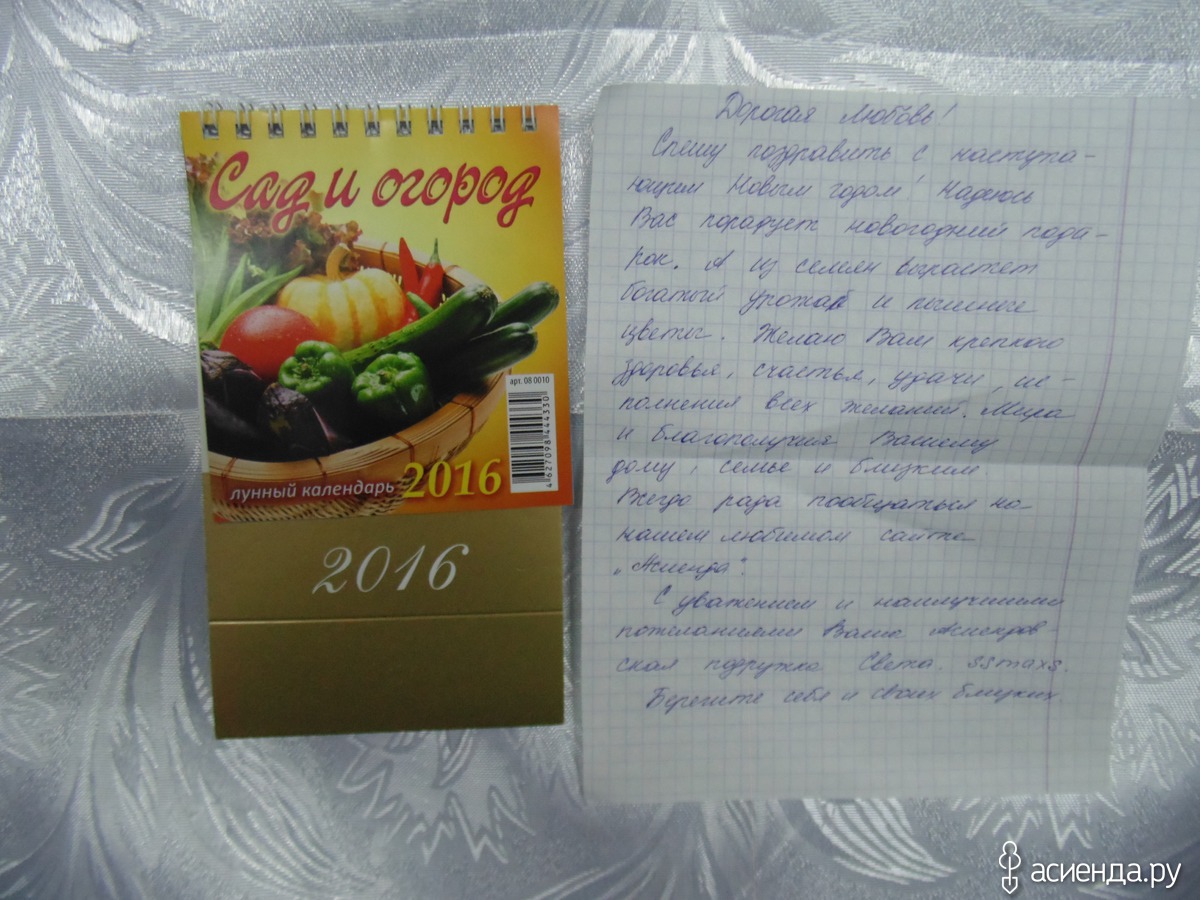 Сад и огород
арт. 08 0010
4627098444330
лунный календарь 2016
2016
Дорогая Любовь!
Спешу поздравить с наступа-
ющим Новым годом! Надеюсь
Вас порадует новогодний пода-
рок. А из семян вырастет
богатый урожай и пышные
цветы. Желаю Вам крепкого
здоровья, счастья, удачи, ис-
полнения всех желаний. Мира
и благополучия Вашему
дому, семье и близким
Всегда рада пообщаться на
нашем любимом сайте
„Асиенда".
С уважением и наилучшими
пожеланиями Ваша Асиендов-
ская подружка Света. ssmaxs.
Берегите себя и своих близких.
асиенда.ру